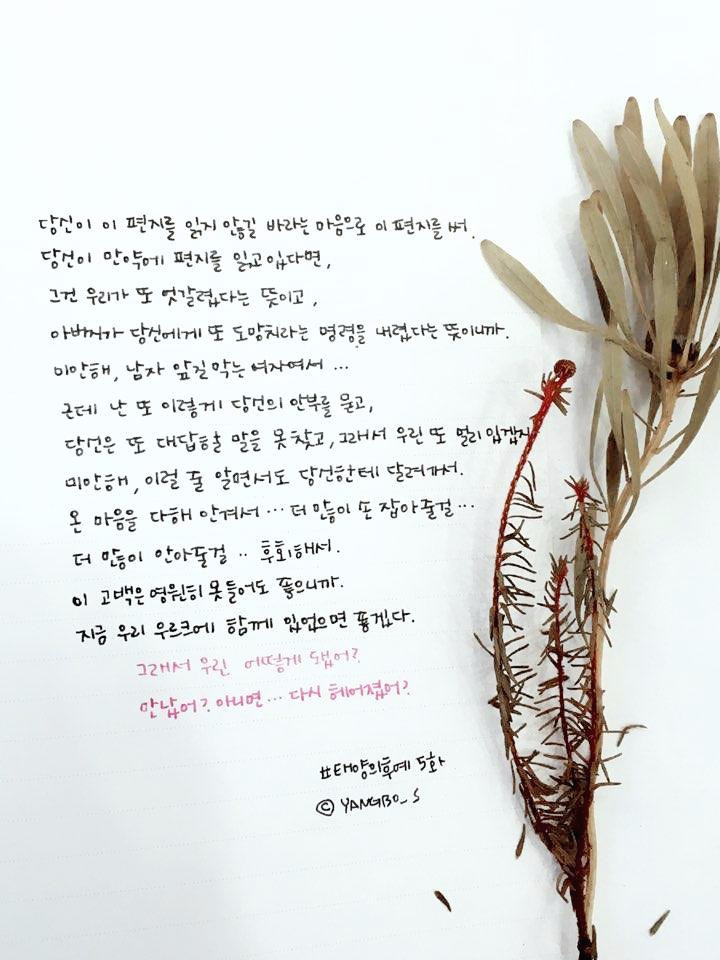 당신이 이 편지를 읽지 않길 바라는 마음으로 이 편지를 써.
당신이 만약에 편지를 읽고 있다면,
그건 우리가 또 엇갈렸다는 뜻이고,
아버지가 당신에게 또 도망치라는 명령을 내렸다는 뜻이니까.
미안해, 남자 앞길 막는 여자여서 ...
근데 난 또 이렇게 당신의 안부를 묻고,
당신은 또 대답할 말을 못 찾고, 그래서 우린 또 멀리 있겠지
미안해, 이럴 줄 알면서도 당신한테 달려가서.
온 마음을 다해 안겨서 ... 더 많이 손 잡아줄걸 ...
더 많이 안아줄걸 .. 후회해서.
이 고백은 영원히 못들어도 좋으니까.
지금 우리 우르크에 함께 있었으면 좋겠다.
그래서 우린 어떻게 됐어?
만났어? 아니면... 다시 헤어졌어?
#태양의후예 5화
© YANGBO_S